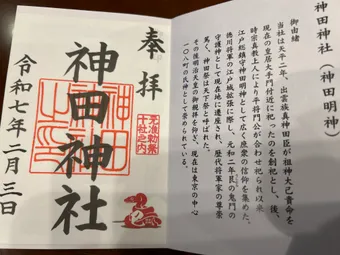 神田神社（神田明神）
御由緒
当社は天平二年、出雲族真神田臣が祖神大己貴命を
現在の皇居大手門付近に祀ったのを創祀とし、後、
時宗真教上人により平将門公が合わせ祀られ以来
江戸総鎮守神田明神として広く庶衆の信仰を集めた。
徳川将軍の江戸城拡張に際し、元和二年艮の鬼門の
守護神として現在地に遷座され、歴代将軍家の尊崇
篤く、神田祭は天下祭と呼ばれた。
その後明治天皇の御親拝を仰ぎ、現在は東京の中心
一〇八町の氏神として崇められている。
奉拝
神田神社
令和七年二月三日